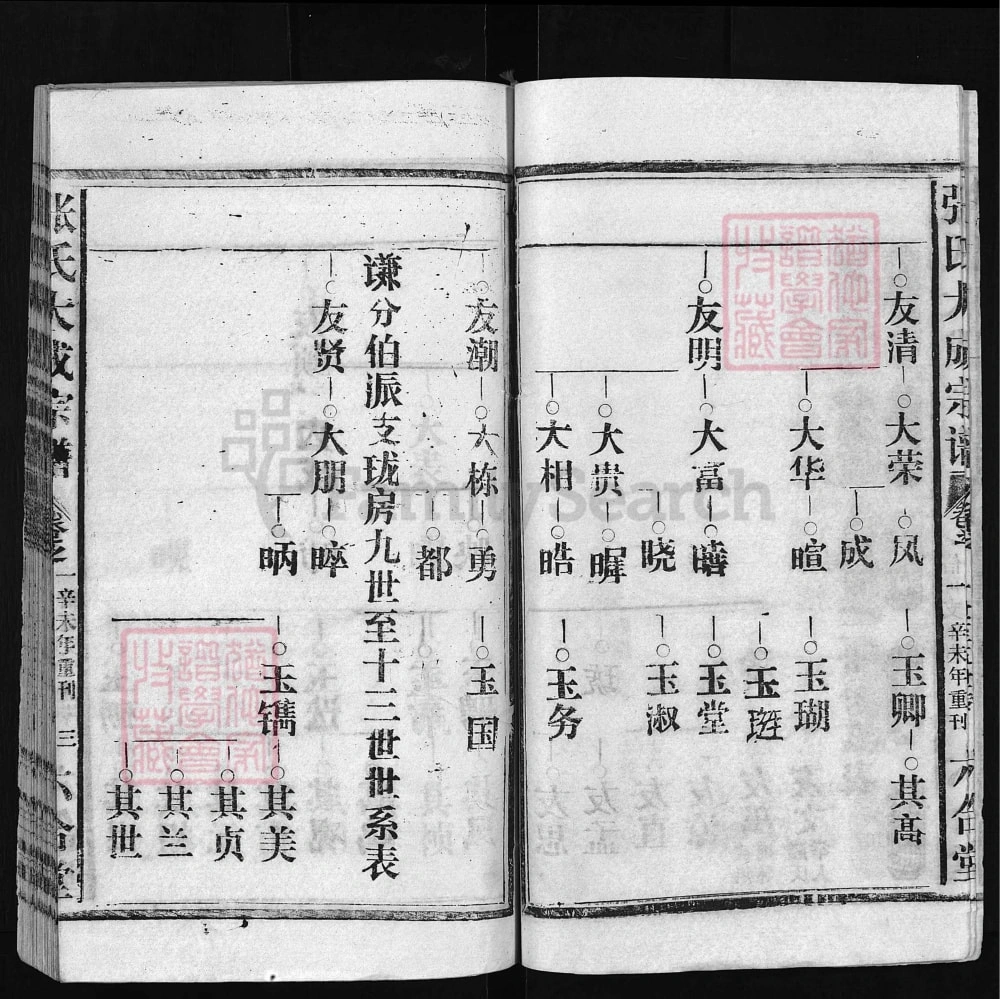 张氏大成宗谱
辛未年重刊
六合堂
友清
大荣
凤
玉卿
其高
成
大华
暄
玉瑚
玉琏
友明
大富
曦
玉堂
晓
玉淑
大贵
暉
大相
皓
玉务
友潮
大栋
勇
玉国
都
谦分伯派支珑房九世至十三世世系表
友贤
大朋
晬
昞
玉镌
其美
其贞
其兰
其世
张氏大成宗谱
卷之一
辛未年重刊
三
六合堂
猶他家譜學會收藏
猶他家譜學會收藏
FamilySearch